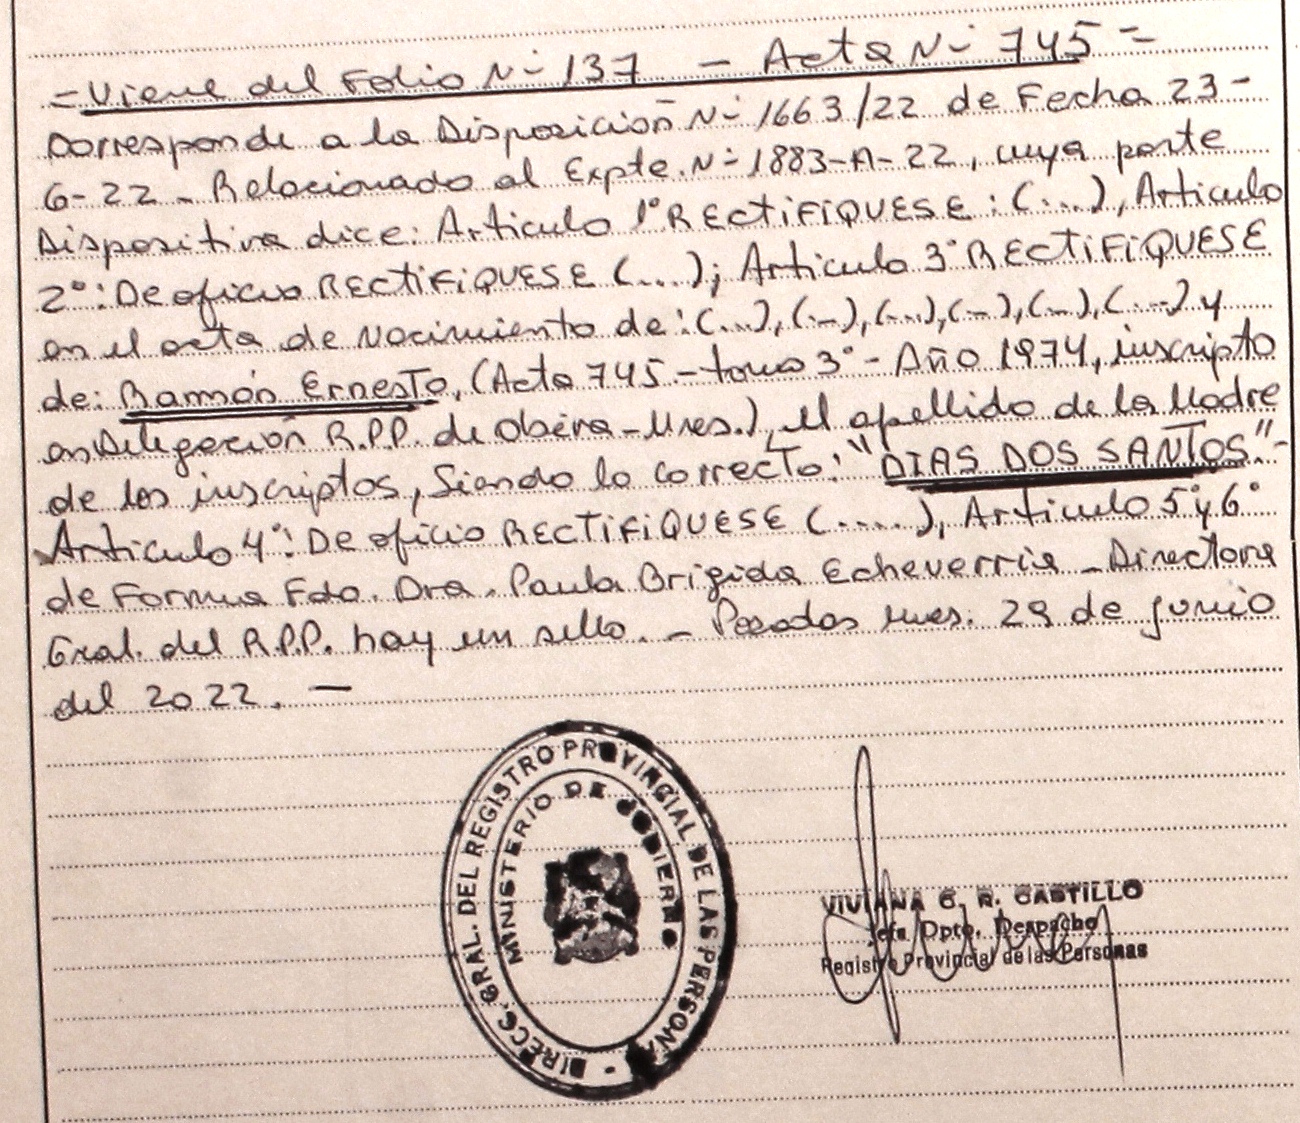 = Viene del Folio N- 137 - Acta N- 745 =
Corresponde a la Disposición N- 1663/22 de Fecha 23-
6-22 - Relacionado al Expte. N- 1883-A-22, cuya parte
Dispositiva dice: Articulo 1° RECTIFIQUESE: (...), Articulo
2°: De oficio RECTIFIQUESE (....); Articulo 3° RECTIFIQUESE
en el acta de nacimiento de: (...), (...), (...), (...), (...), (...) y
de: Ramón Ernesto, (Acta 745 - tomo 3° - Año 1974, inscripto
en Delegación R.P.P. de Oberá - Mnes.), el apellido de la Madre
de los inscriptos, Siendo lo correcto: "DIAS DOS SANTOS".-
Articulo 4°: De oficio RECTIFIQUESE (.....), Articulo 5° y 6°
de Forma Fdo. Dra. Paula Brigida Echeverria - Directora
Gral. del R.P.P. hay un sello. - Posadas Mnes. 29 de junio
del 2022. -
DIRECC. GRAL. DEL REGISTRO PROVINCIAL DE LAS PERSONA
MINISTERIO DE GOBIERNO
VIVIANA G. R. CASTILLO
Jefa Dpto. Despacho
Registro Provincial de las Personas